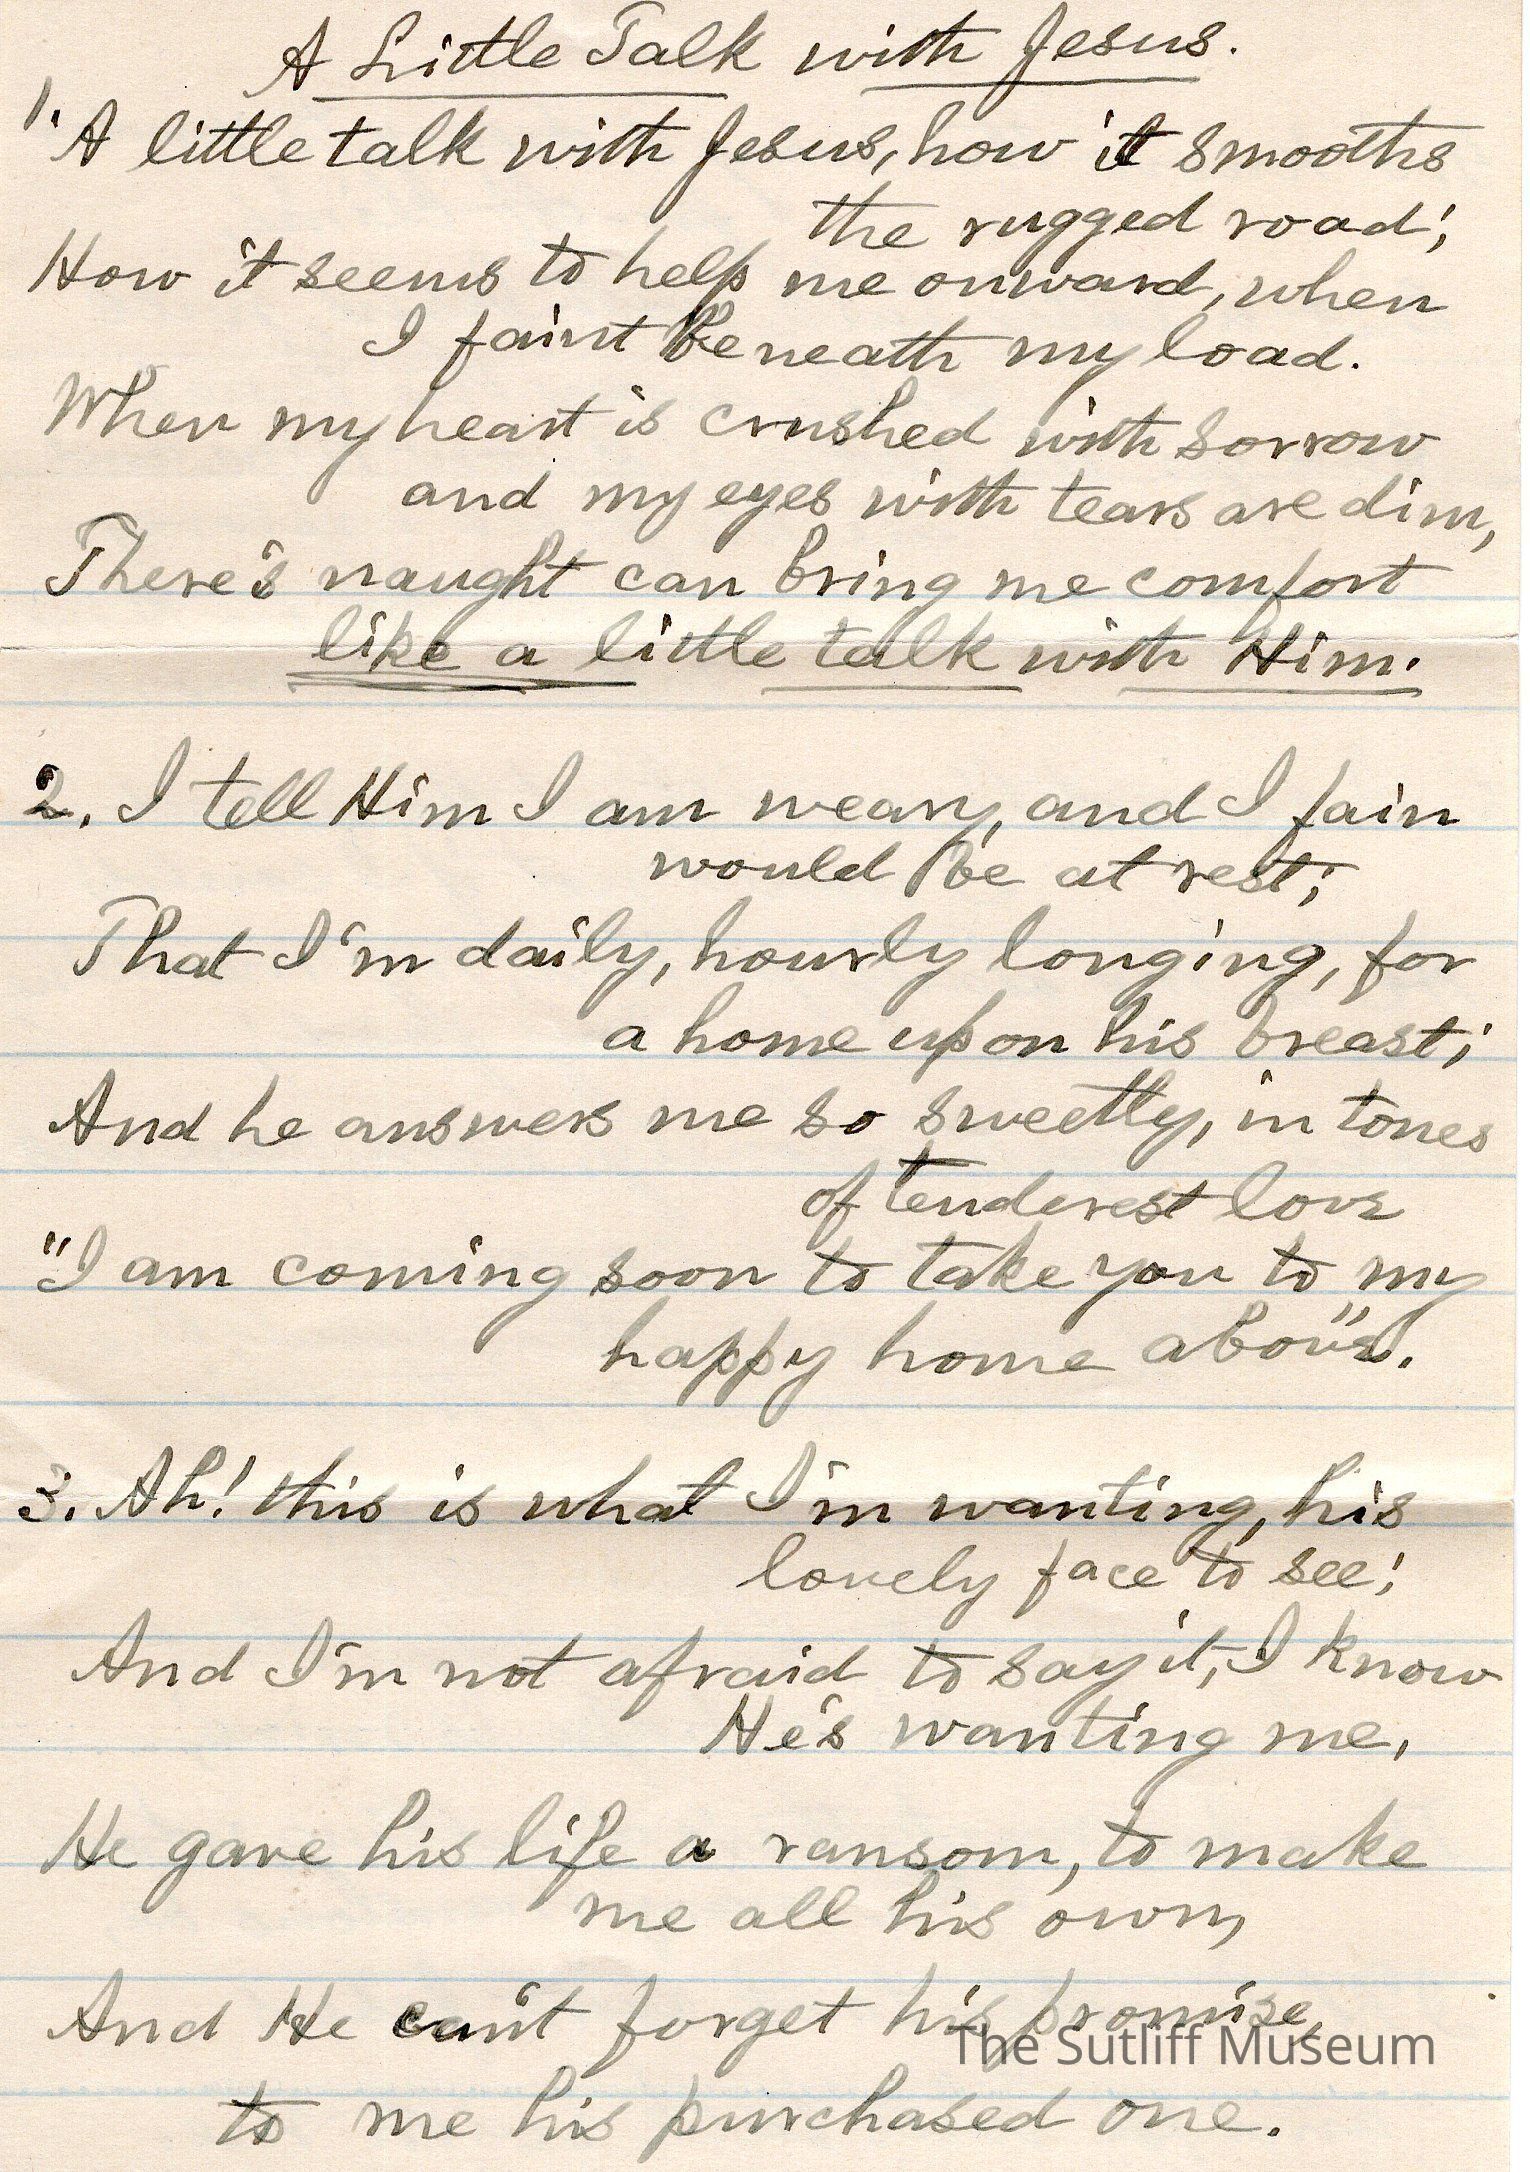 A Little Talk with Jesus.
1. A little talk with Jesus, how it smooths
the rugged road;
How it seems to help me onward, when
I faint beneath my load.
When my heart is crushed with sorrow
and my eyes with tears are dim,
There's naught can bring me comfort
like a little talk with Him.
2. I tell Him I am weary, and I fain
would be at rest;
That I'm daily, hourly longing, for
a home upon his breast;
And he answers me so sweetly, in tones
of tenderest love
"I am coming soon to take you to my
happy home above".
3. Ah! this is what I'm wanting, his
lovely face to see;
And I'm not afraid to say it, I know
He's wanting me,
He gave his life a ransom, to make
me all his own,
And He can't forget his promise,
to me his purchased one.
The Sutliff Museum